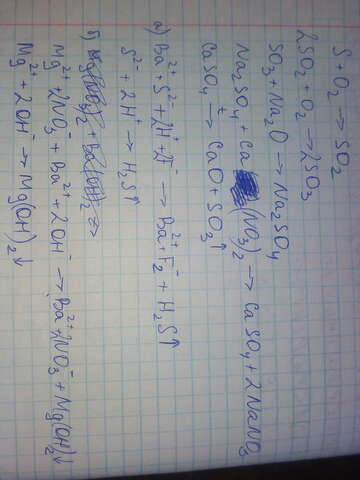 S + O₂ → SO₂
2SO₂ + O₂ → 2SO₃
SO₃ + Na₂O → Na₂SO₄
Na₂SO₄ + Ca (NO₃)₂ → CaSO₄ + 2NaNO₃
CaSO₄ →ᵗ CaO + SO₃↑
а) Ba²⁺ + S²⁻ + 2H⁺ + 2F⁻ → Ba²⁺ + F₂⁻ + H₂S↑
S²⁻ + 2H⁺ → H₂S↑
б)
Mg²⁺ + 2NO₃⁻ + Ba²⁺ + 2OH⁻ → Ba²⁺ + 2NO₃⁻ + Mg(OH)₂↓
Mg²⁺ + 2OH⁻ → Mg(OH)₂↓